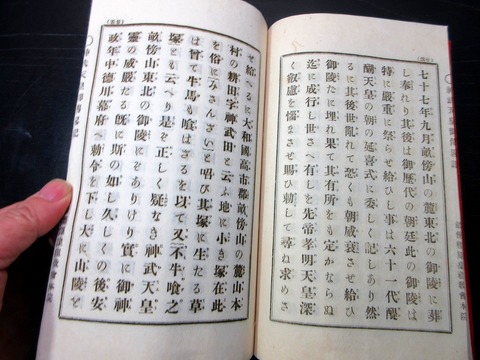 七十七年九月畝傍山の麓東北の御陵に葬
し奉れり其後は御歴代の朝廷此の御陵は
特に嚴重に祭らせ給ひし事は六十一代醍
醐天皇の朝の延喜式に委しく記しあり然
るに其後世亂れて恐くも朝威衰させ給ひ
御陵たに埋れ果て其有所をも定かならぬ
迄に成行し世さへ有しを先帝孝明天皇深
く叡慮を惱まさせ賜勅して尋ね求めさ
せ給へるに大和國高市郡畝傍山の麓山本
村の耕田字神武田と云ふ地に小き塚在此
を俗に(みさんざい)と唱ひ其塚に生たる草
は曾て牛馬も喰はざるを以て又不牛喰之
塚とも云へり是を正しく疑なき神武天皇
畝傍山東北の御陵にそありけり實に御神
靈の威嚴たる既に斯の如し久しくの後安
政年中德川幕府へ勅令を下し大に山陵を